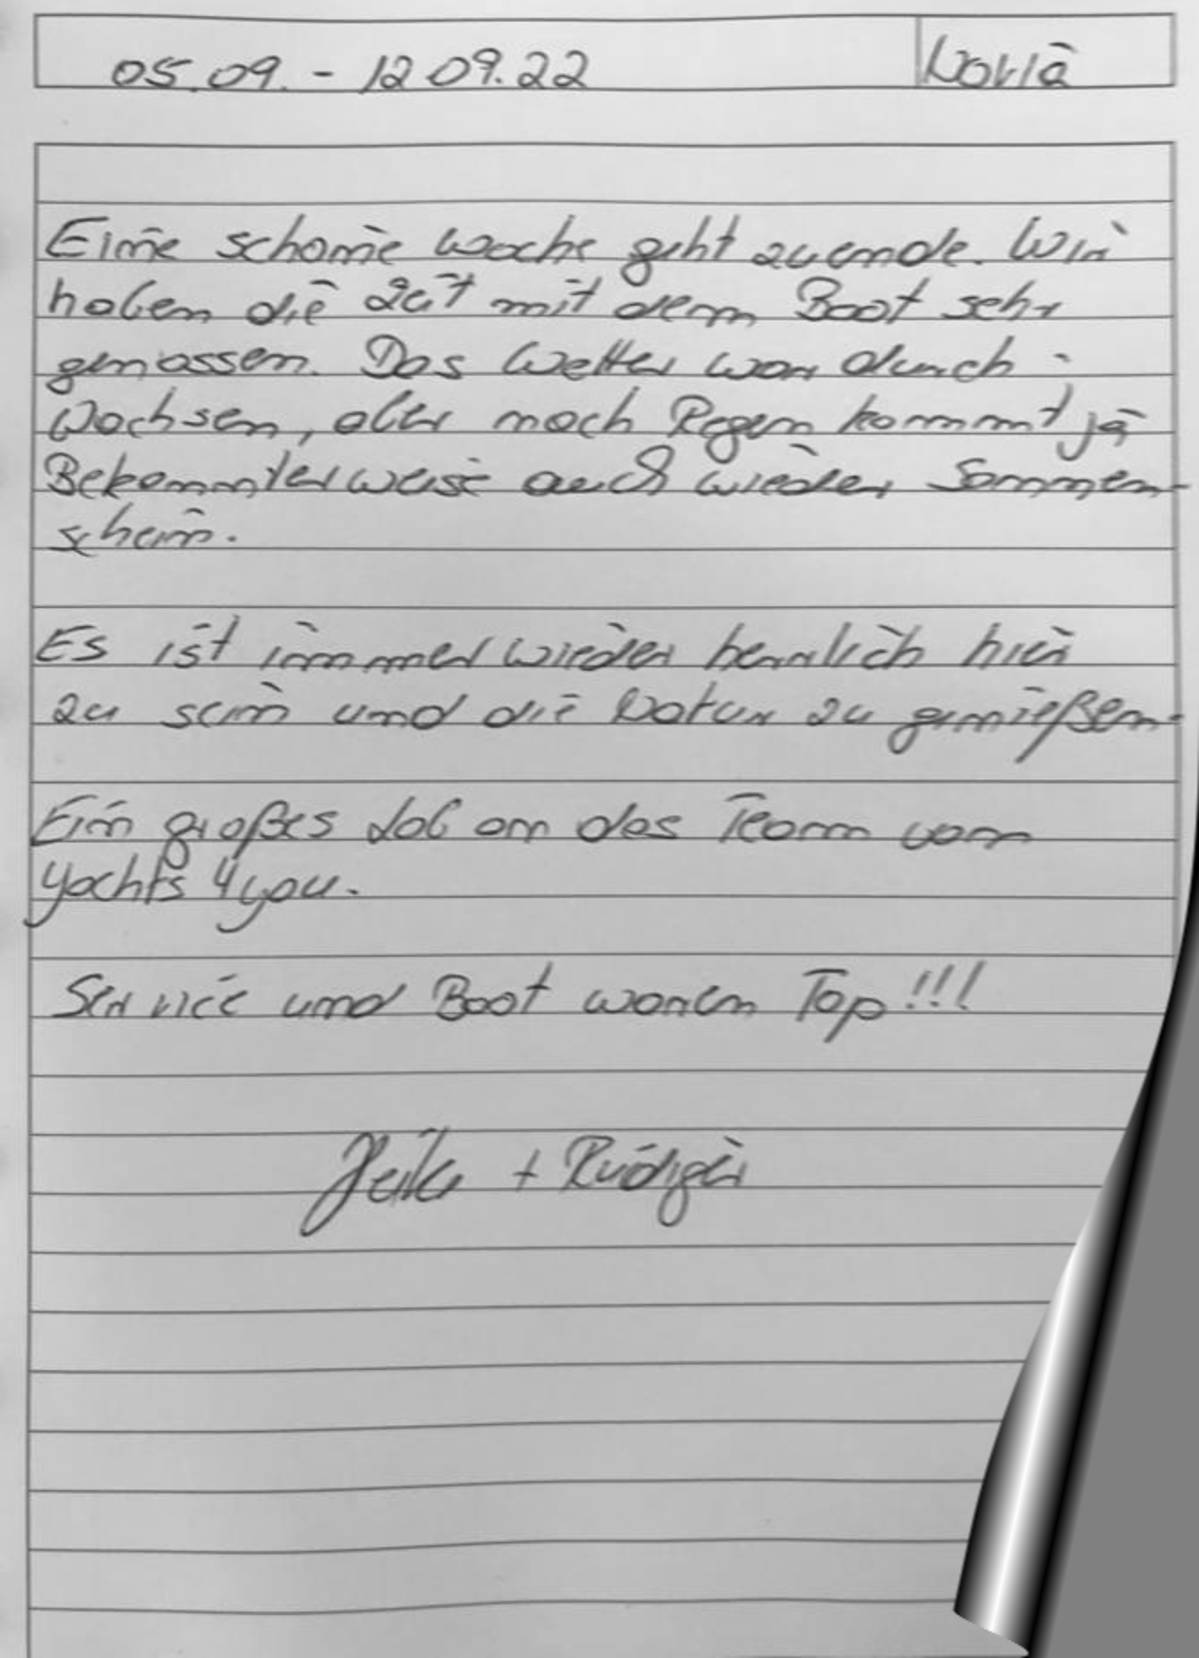 05.09. - 12 09.22 Novia
Eine schöne Woche geht zuende. Wir
haben die Zeit mit dem Boot sehr
genossen. Das Wetter war durch-
wachsen, aber nach Regen kommt ja
Bekannterweise auch wieder Sonnen-
schein.
Es ist immer wieder herrlich hier
zu sein und die Natur zu genießen.
Ein großes Lob an das Team von
Yachts 4you.
Service und Boot waren Top!!!
Heike + Rüdiger